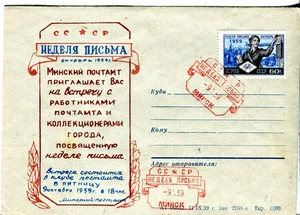 СС СР
НЕДЕЛЯ ПИСЬМА
октябрь 1959 г.
МИНСКИЙ ПОЧТАМТ
ПРИГЛАШАЕТ ВАС
на встречу с
РАБОТНИКАМИ
ПОЧТАМТА И
КОЛЛЕКЦИОНЕРАМИ
ГОРОДА,
посвященную
неделе письма
Встреча состоится
в клубе почтамта
в ПЯТНИЦУ
9 октября 1959 г. в 18 час.
Минский почтамт
1959
60
СС СР
НЕДЕЛЯ ПИСЬМА
-9 59
МИНСК
Куда
Кому
Адрес отправителя:
СС СР
НЕДЕЛЯ ПИСЬМА
-9 59
МИНСК
IX 59 г.
Тир. 1000